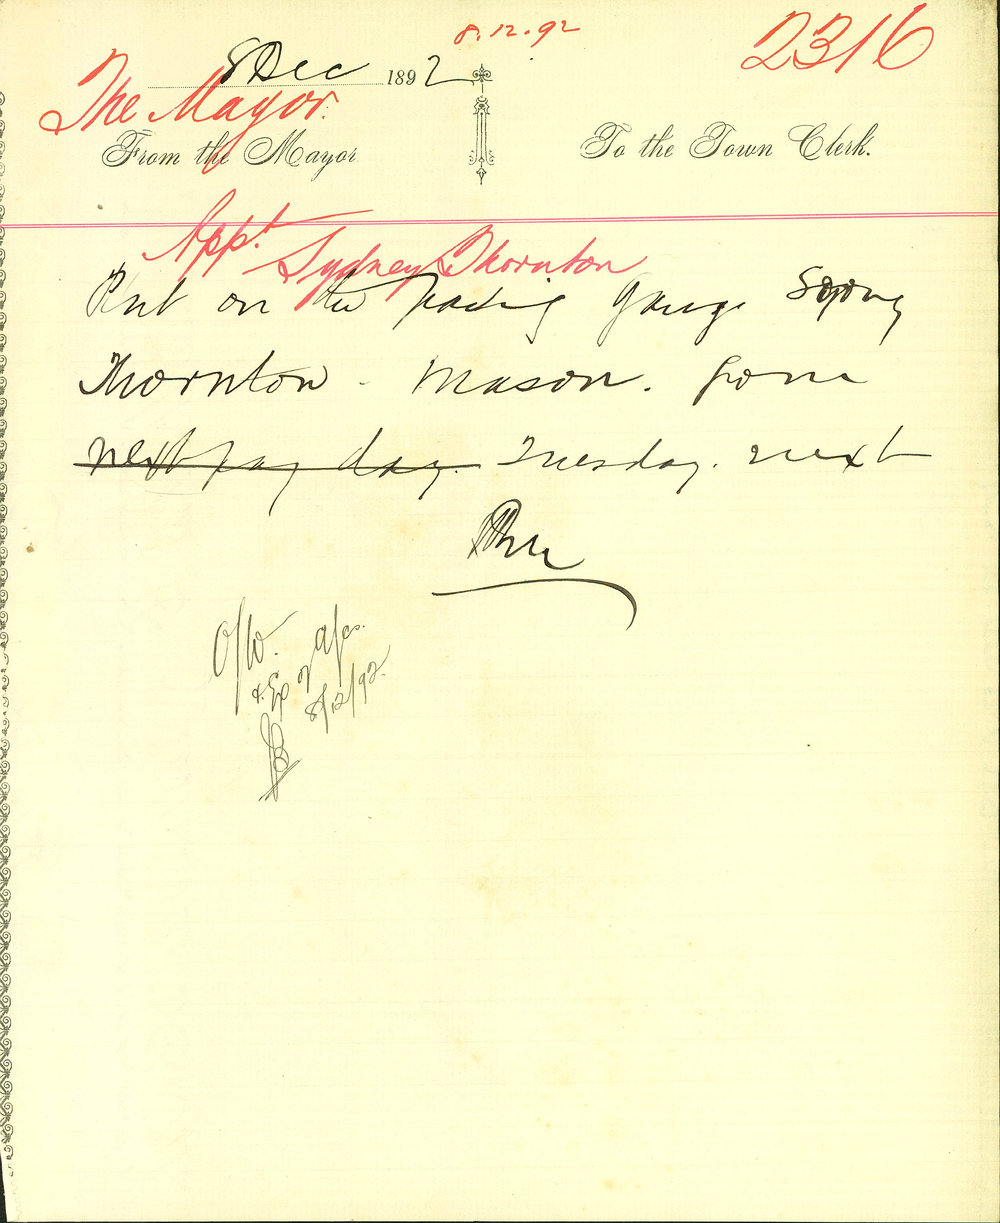 8.12.92
2316
8 Dec 1892
The Mayor.
From the Mayor
To the Town Clerk.
Appt. Sydney Thornton
Put on the paving gang Sydney
Thornton - Mason. from
next pay day. Tuesday. next
O/W. a/cs.
& Ex of
8/12/92.